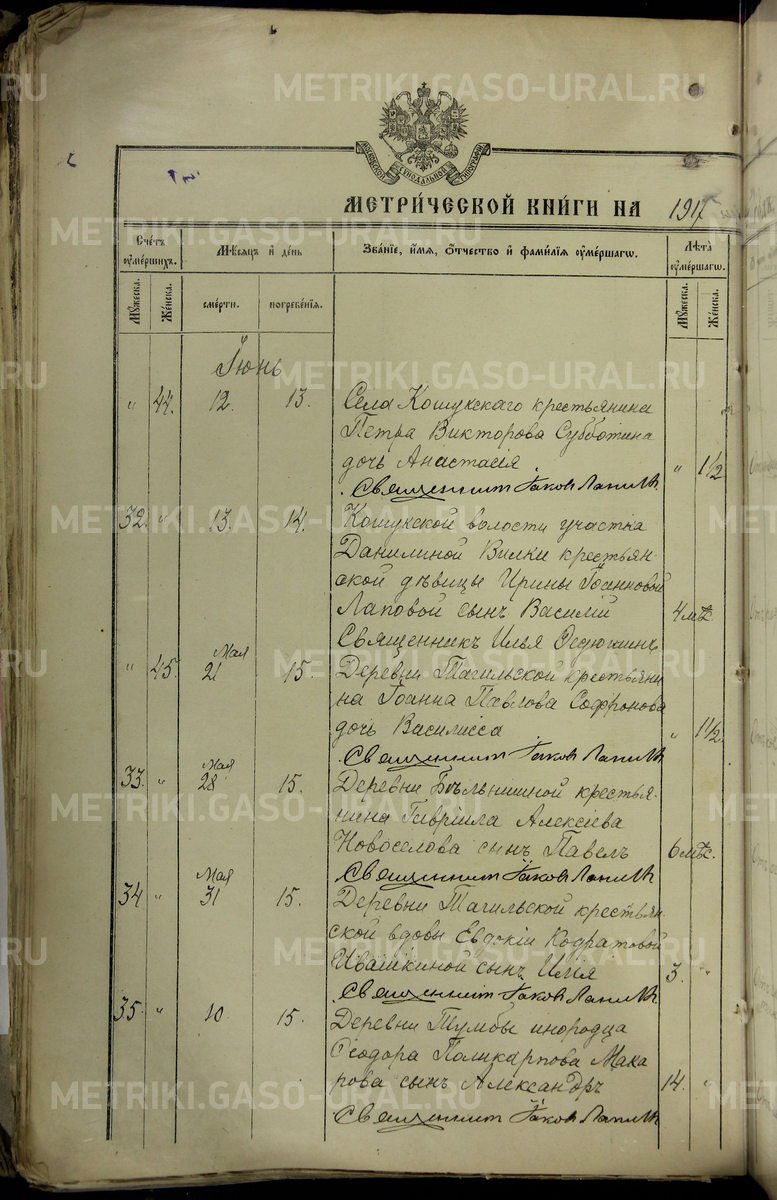 METRIKI.GASO-URAL.RU
МОСКОВСКОЙ СѴНОДАЛЬНОЙ ТИПОГРАФІИ
МЕТРИ́ЧЕСКОЙ КНИ́ГИ НА 1917
Сче́тъ ᲂу҆ме́ршихъ.
Мѣ́сяцъ и҆ де́нь
Зва́нїе, и҆́мя, ѻ҆́тчество и҆ фами́лїѧ ᲂу҆ме́ршагѡ.
Лѣ́та ᲂу҆ме́ршагѡ.
Мꙋ́жеска.
Же́нска.
сме́рти.
погребе́нїѧ.
Мꙋ́жеска.
Же́нска.
Іюнь
" 44. 12. 13. Села Кошукскаго крестьянина
Петра Викторова Субботина
дочь Анастасія " 1½
Священник Іаков
32. " 13. 14. Кошукской волости участка
Данилиной Вилки крестьян-
ской дѣвицы Ирины Іоанновой
Лаповой сынъ Василій 4 мѣс.
Священникъ Илья Федюшинъ
" 45. Мая 21 15. Деревни Тагильской крестьяни
на Іоанна Павлова Софронова
дочь Василисса " 1½
Священник Іаков
33. " Мая 28 15. Деревни Бѣльнишной крестья-
нина Гавріила Алексіева
Новоселова сынъ Павелъ 6 мѣс.
Священник Іаков
34 " Мая 31 15. Деревни Тагильской крестьян-
ской вдовы Евдокіи Кодратовой
Ивашкиной сынъ Илія 3. "
Священник Іаков
35. " 10 15. Деревни Тумбы инородца
Ѳеодора Поликарпова Мака
рова сынъ Александръ 14. "
Священник Іаков